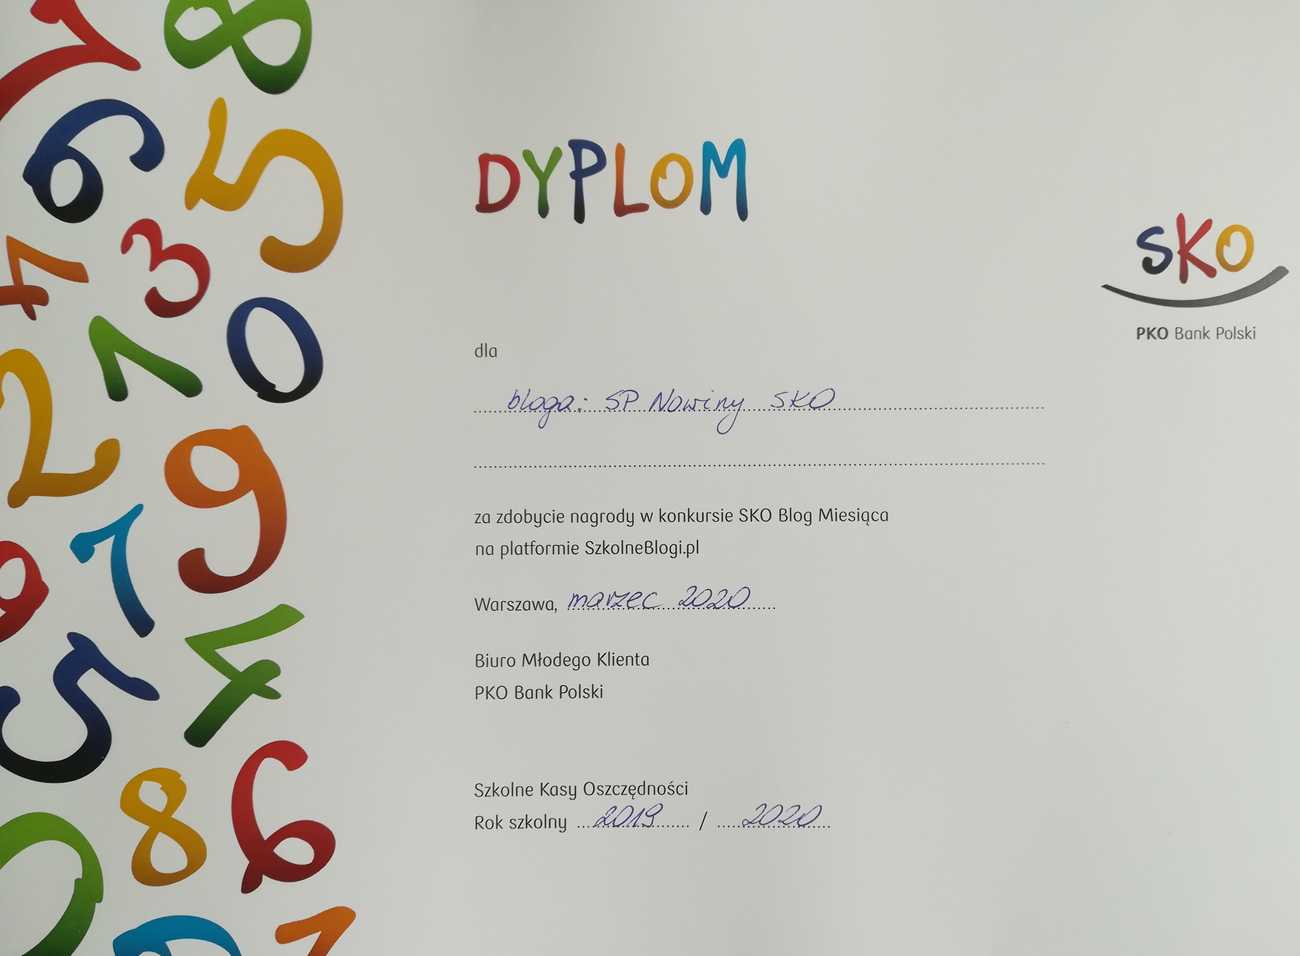 DYPLOM
SKO
PKO Bank Polski
dla
bloga: SP Nowiny SKO
za zdobycie nagrody w konkursie SKO Blog Miesiąca
na platformie SzkolneBlogi.pl
Warszawa, marzec 2020
Biuro Młodego Klienta
PKO Bank Polski
Szkolne Kasy Oszczędności
Rok szkolny 2019 / 2020